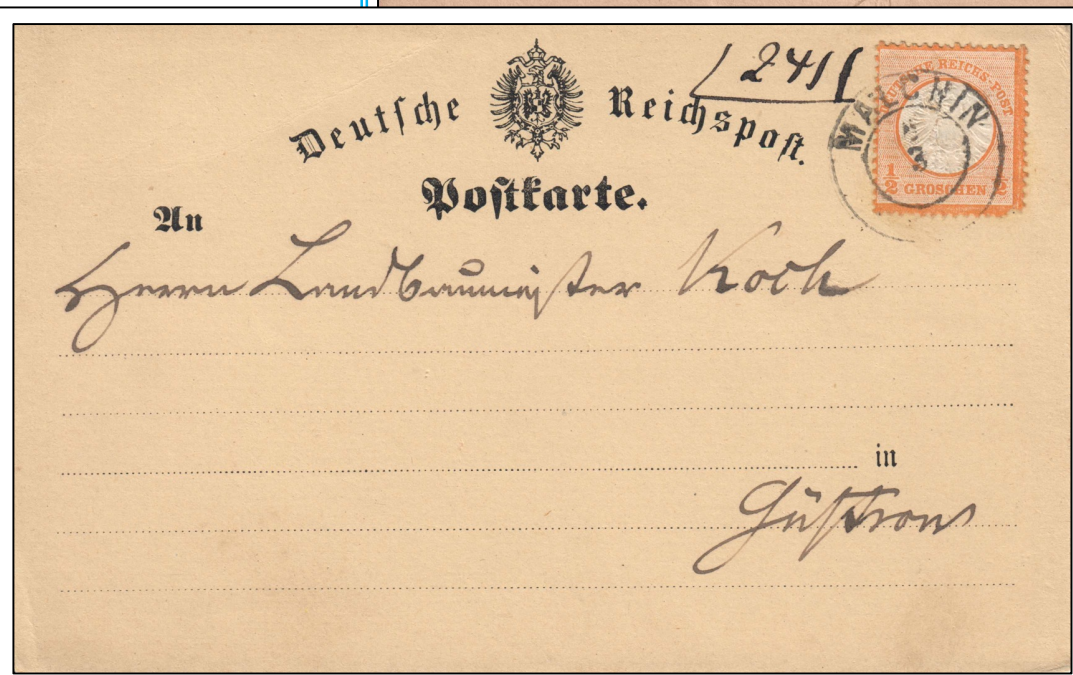 Deutsche Reichspost.
241
DEUTSCHE REICHS-POST
½ GROSCHEN ½
MALCHIN
Postkarte.
An
Herrn Landbaumeister Koch
in
Güstrow